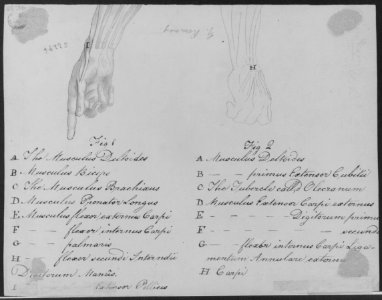 I
H
Fig 1
A The Musculus Deltoides
B Musculus Biceps
C The Musculus Brachiaus
D Musculus Pronator Longus
E Musculus flexor externus Carpi
F — — flexor internus Carpi
G — — palmaris
H — — flexor secundi Internodii
Digitorum Manus
I — — — extensor Pollicis
Fig 2
A Musculus Deltoides
B — — primus Extensor Cubitii
C The Tubercle called Olecranum
D Musculus Extensor Carpi externus
E — — — — Digitorum primus
F — — — — — secundus
G — — flexor internus Carpi Liga-
mentum Annulare externus
H Carpi